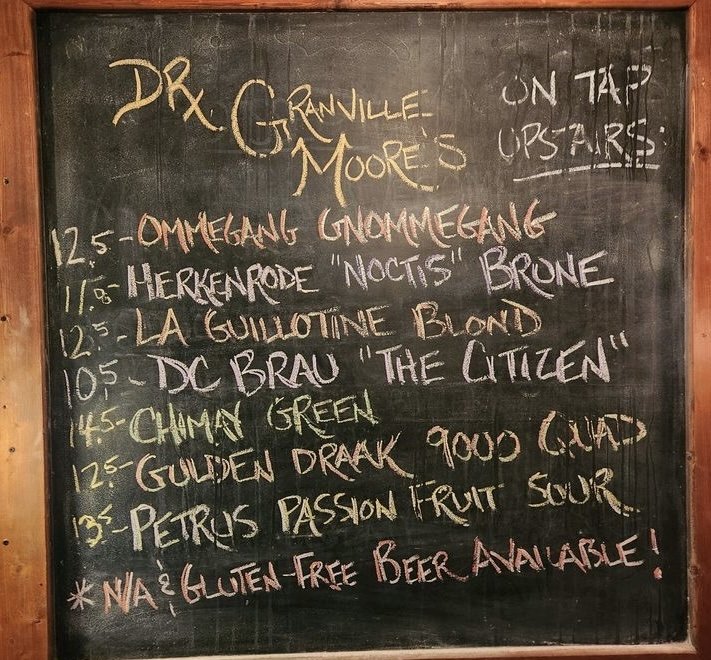 DR. GRANVILLE MOORE'S
ON TAP UPSTAIRS:
12.5 - OMMEGANG GNOMMEGANG
11.5 - HERKENRODE "NOCTIS" BRUNE
12.5 - LA GUILLOTINE BLOND
10.5 - DC BRAU "THE CITIZEN"
14.5 - CHIMAY GREEN
12.5 - GULDEN DRAAK 9000 QUAD
13.5 - PETRUS PASSION FRUIT SOUR
* N/A & GLUTEN-FREE BEER AVAILABLE!